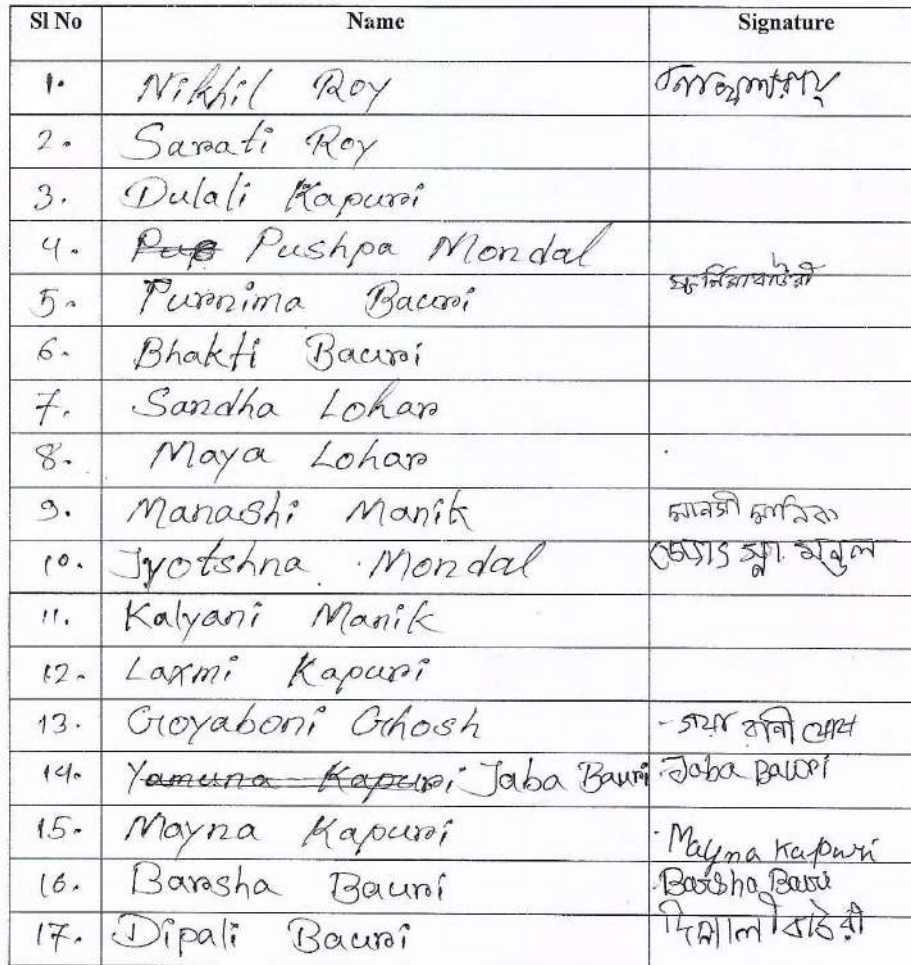 Sl No Name Signature
1. Nikhil Roy
2. Sarati Roy
3. Dulali Kapuri
4. Pup Pushpa Mondal
5. Purnima Bauri পূর্নিমা বাউরী
6. Bhakti Bauri
7. Sandha Lohar
8. Maya Lohar
9. Manashi Manik মানসী মানিক
10. Jyotshna Mondal জোৎস্না মন্ডল
11. Kalyani Manik
12. Laxmi Kapuri
13. Goyaboni Ghosh গয়া বনী ঘোষ
14. Yamuna Kapuri Jaba Bauri Jaba Bauri
15. Mayna Kapuri Mayna Kapuri
16. Barsha Bauri Barsha Bauri
17. Dipali Bauri দিপালী বাউরী